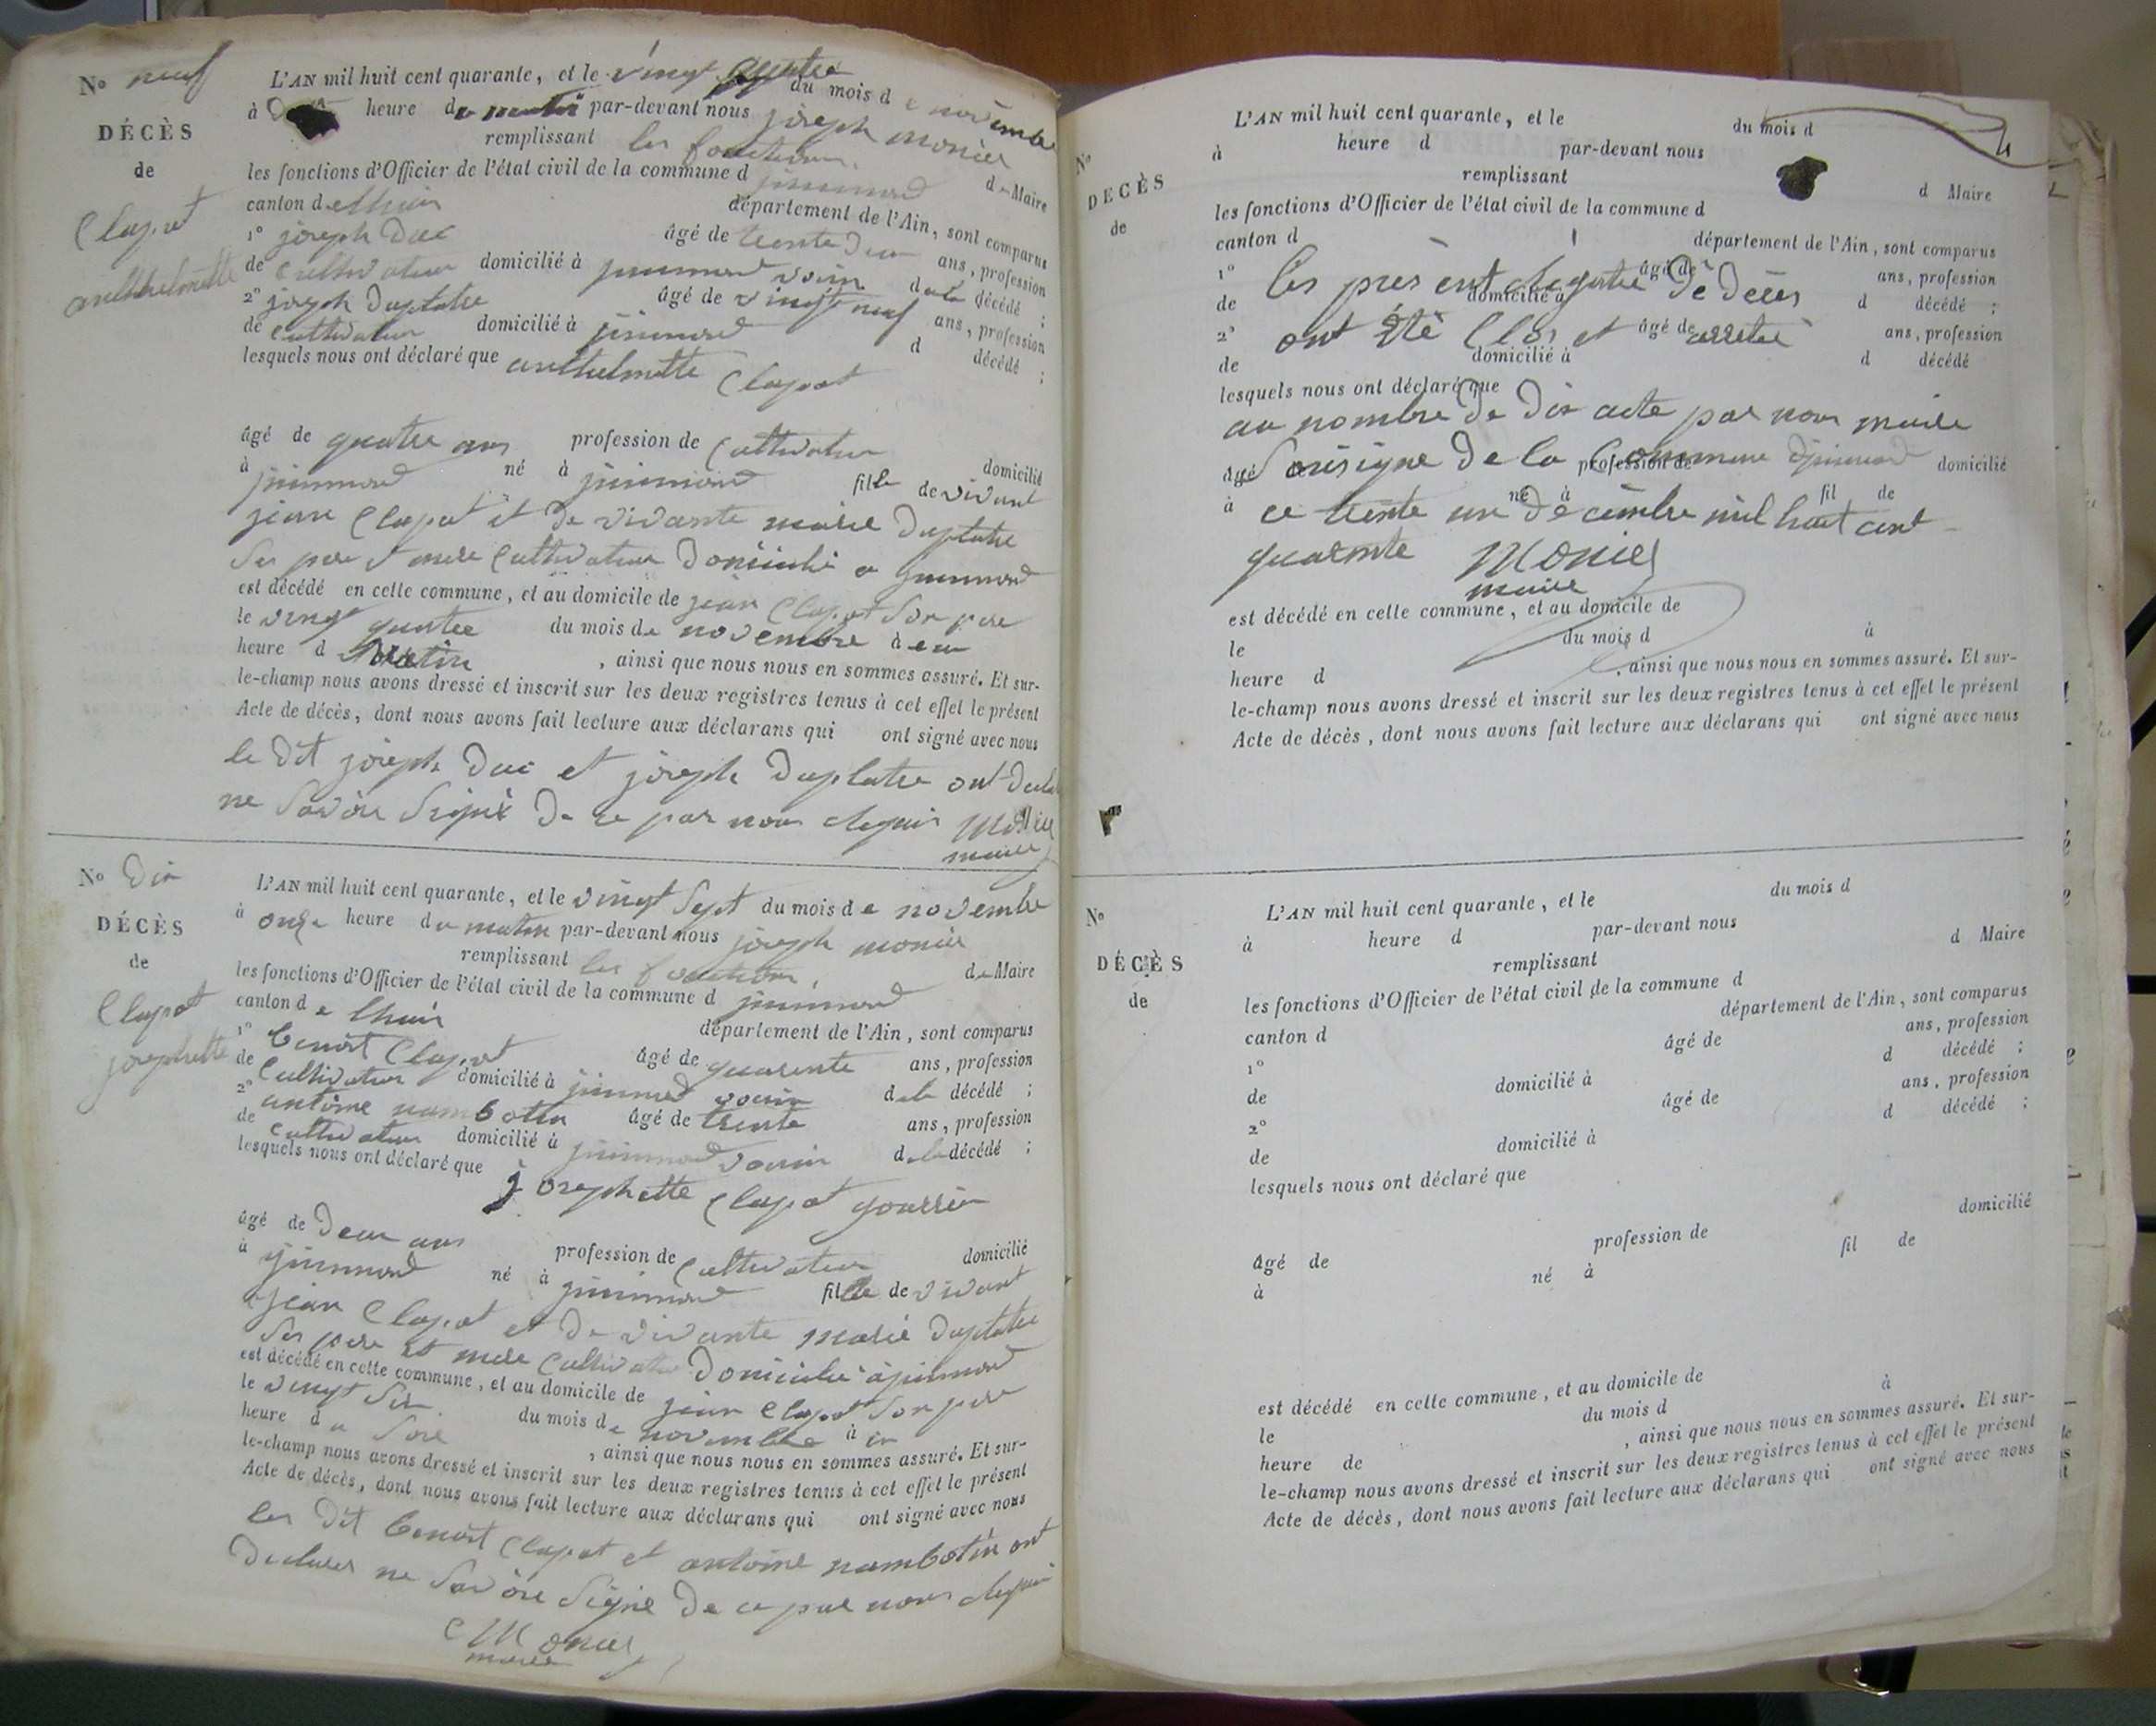 No neuf
DÉCÈS
de
Clapot
anthelmette
L'AN mil huit cent quarante, et le vingt quatre du mois de novembre
à heure du matin par-devant nous joseph monier
remplissant les fonctions de Maire
les fonctions d'Officier de l'état civil de la commune d jujurieux
canton de lhuis département de l'Ain, sont comparus
1° joseph Duc âgé de trente Deux ans, profession
de Cultivateur domicilié à voisin de la décédé ;
2° joseph Duplatre âgé de vingt neuf ans, profession
de Cultivateur domicilié à d décédé ;
lesquels nous ont déclaré que anthelmette Clapot
âgé de quatre ans profession de Cultivateur domicilié
à né à fille de vivant
jean Clapot et De vivante marie Duplatre
Ses pere et mere Cultivateur Domicilié a
est décédé en cette commune, et au domicile de jean Clapot Son pere
le vingt quatre du mois de novembre à
heure d matin , ainsi que nous nous en sommes assuré. Et sur-
le-champ nous avons dressé et inscrit sur les deux registres tenus à cet effet le présent
Acte de décès, dont nous avons fait lecture aux déclarans qui ont signé avec nous
le Dit joseph Duc et joseph Duplatre ont
ne Savoir Signé De ce par nous Monier
maire
No Dix
DÉCÈS
de
Clapot
josephette
L'AN mil huit cent quarante, et le vingt Sept du mois de novembre
à onze heure du matin par-devant nous joseph monier
remplissant les fonctions de Maire
les fonctions d'Officier de l'état civil de la commune d
canton de lhuis département de l'Ain, sont comparus
1° Benoit Clapot âgé de quarente ans, profession
de Cultivateur domicilié à voisin de la décédé ;
2° antoine nambotin âgé de trente ans, profession
de Cultivateur domicilié à voisin de la décédé ;
lesquels nous ont déclaré que josephette Clapot
âgé de Deux ans profession de Cultivateur domicilié
à né à fille de vivant
jean Clapot et De vivante marie Duplatre
Ses pere et mere Cultivateur Domicilié à
est décédé en cette commune, et au domicile de jean Clapot Son pere
le vingt Six du mois de novembre à
heure du Soir , ainsi que nous nous en sommes assuré. Et sur-
le-champ nous avons dressé et inscrit sur les deux registres tenus à cet effet le présent
Acte de décès, dont nous avons fait lecture aux déclarans qui ont signé avec nous
les Dit Benoit Clapot et antoine nambotin ont
ne Savoir Signé De ce par nous
Monier
maire
No
DÉCÈS
de
L'AN mil huit cent quarante, et le du mois d
à heure d par-devant nous
remplissant d Maire
les fonctions d'Officier de l'état civil de la commune d
canton d département de l'Ain, sont comparus
1° âgé de ans, profession
les present De Deces
de domicilié à d décédé ;
2° âgé de ans, profession
ont été Clos et arrêté
de domicilié à d décédé
lesquels nous ont déclaré que
au nombre De Dix acte par nous maire
âgé profession de domicilié
De la Commune
à né à fil de
ce trente un Décembre mil huit cent
quarante Monier
maire
est décédé en cette commune, et au domicile de
le du mois d à
heure d , ainsi que nous nous en sommes assuré. Et sur-
le-champ nous avons dressé et inscrit sur les deux registres tenus à cet effet le présent
Acte de décès, dont nous avons fait lecture aux déclarans qui ont signé avec nous
No
DÉCÈS
de
L'AN mil huit cent quarante, et le du mois d
à heure d par-devant nous
remplissant d Maire
les fonctions d'Officier de l'état civil de la commune d
canton d département de l'Ain, sont comparus
1° âgé de ans, profession
de domicilié à d décédé ;
2° âgé de ans, profession
de domicilié à d décédé ;
lesquels nous ont déclaré que
âgé de profession de domicilié
à né à fil de
est décédé en cette commune, et au domicile de
le du mois d à
heure de , ainsi que nous nous en sommes assuré. Et sur-
le-champ nous avons dressé et inscrit sur les deux registres tenus à cet effet le présent
Acte de décès, dont nous avons fait lecture aux déclarans qui ont signé avec nous